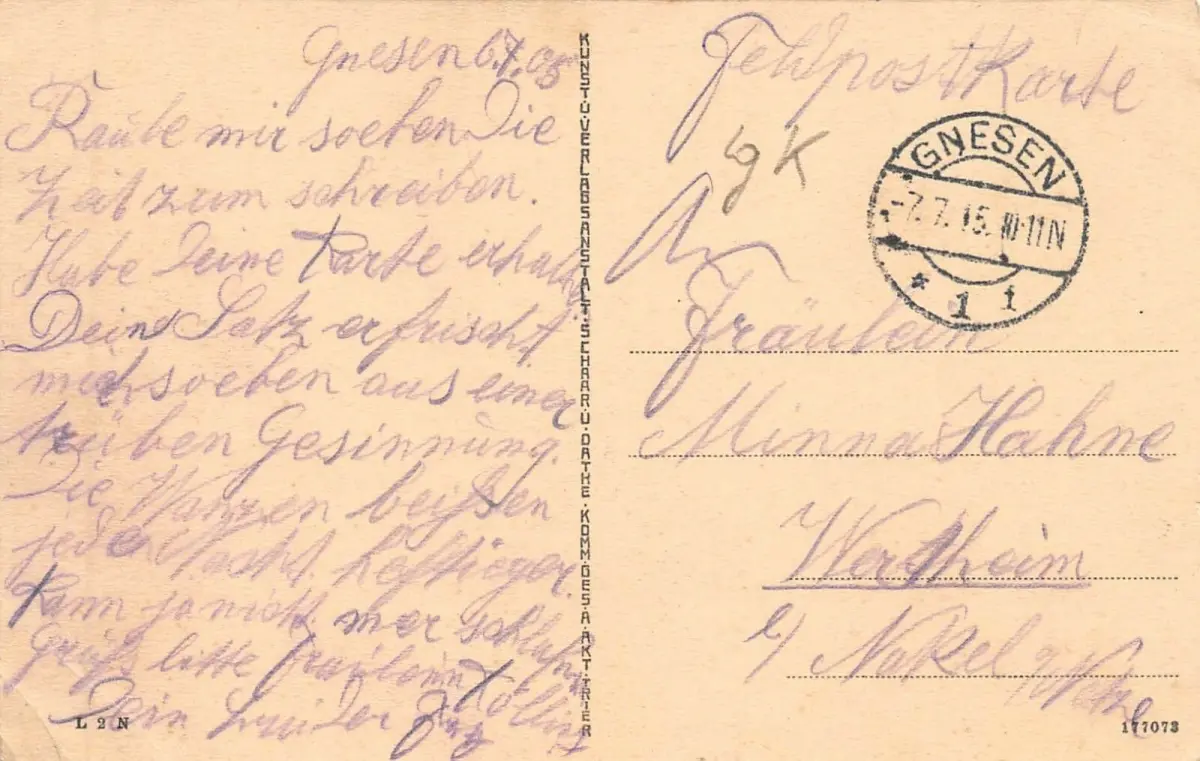 Gnesen 6.7.
Raube mir soeben Die
Zeit zum schreiben.
Habe Deine Karte erhalt.
Dein Satz erfrischt
mich soeben aus einer
trüben Gesinnung.
Die Wanzen beißen
jede Nacht heftieger.
Kann ja nich mer schlafen
Grüß bitte Fräulein
Dein Bruder
L 2 N
KUNST.U.VERLAGSANSTALT.SCHAAR.U.DATHE.KOMM.GES.A.AKT.TRIER
Feldpost Karte
K
GNESEN
-7.7.15. 10-11N
* 1 f
An
Fräulein
Minna Hahne
Wertheim
b/ Nakel a/ Netze
177073